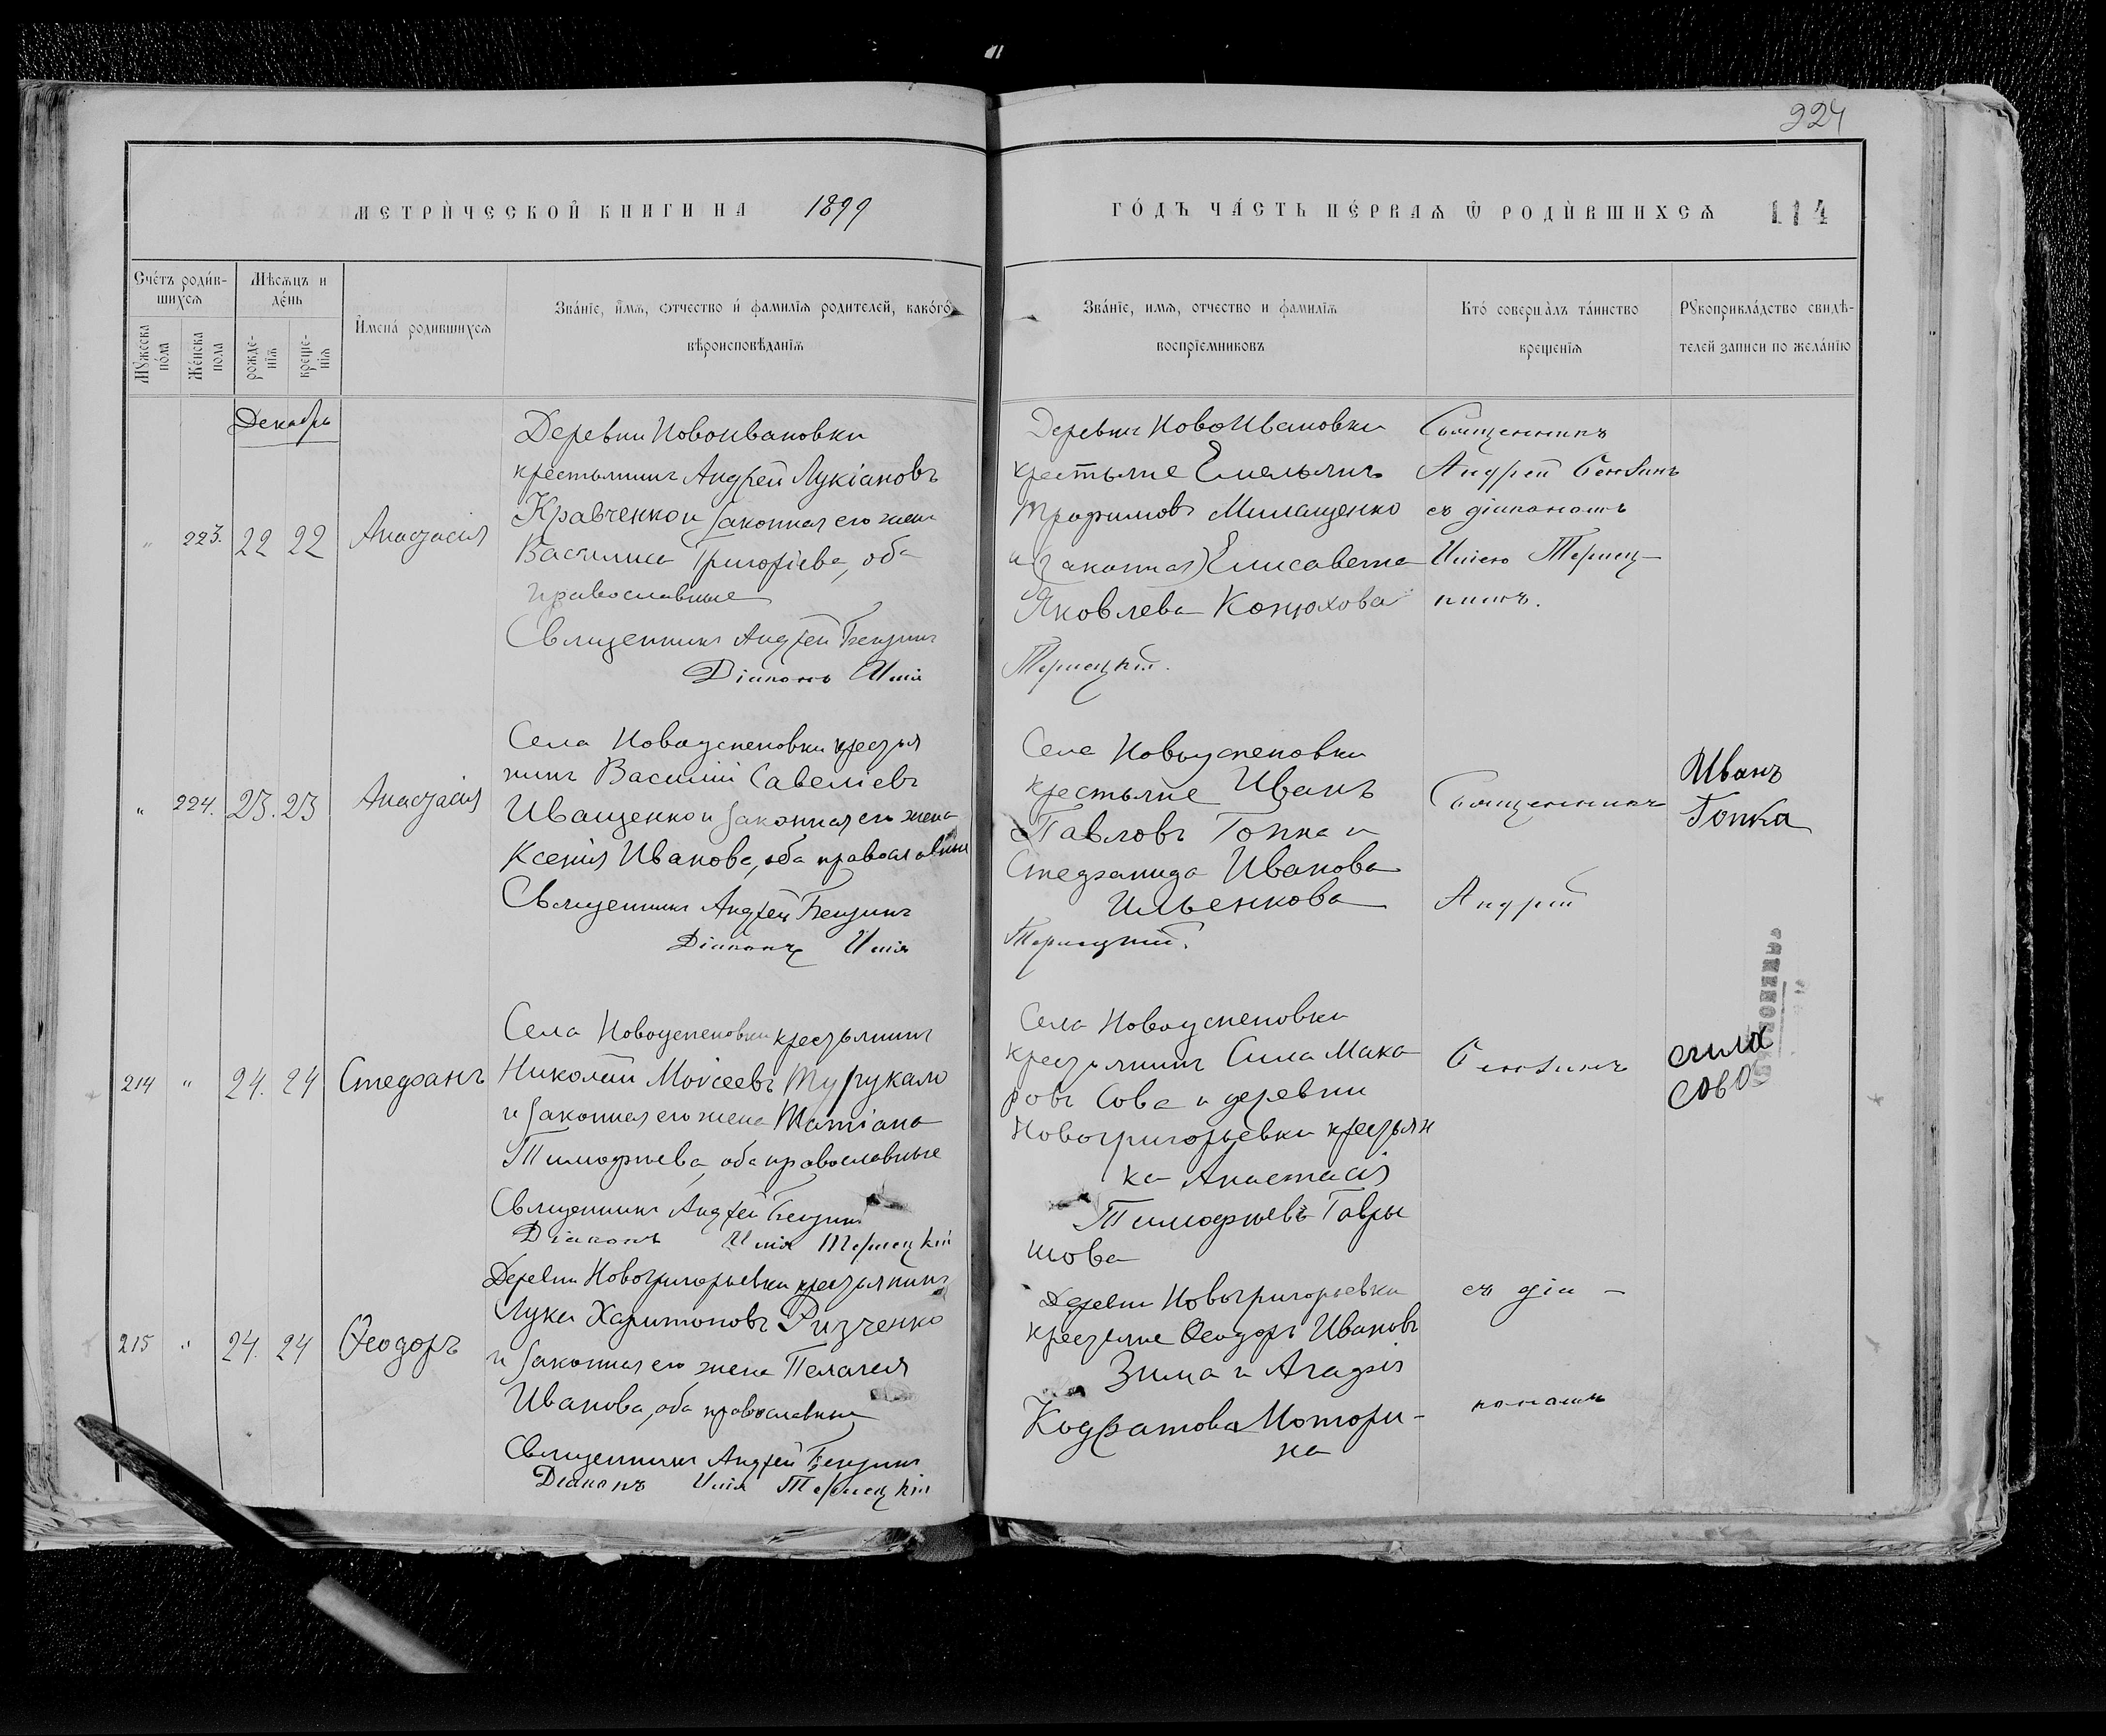 224
МЕТРИ́ЧЕСКОЙ КНИГИ НА 1899
ГО́ДЪ ЧА́СТЬ ПЕ́РВАЯ Ѿ РОДИ́ВШИХСЯ 114
Сче́тъ роди́в-
шихся
Мѣсяцъ и
де́нь
Му́жеска по́ла
Же́нска пола
рожде-
нія
креще-
нія
И҆мена̀ родившихся
Зва́нїе, и҆мя, ѻтчество и҆ фамилїя родителей, како́гѡ
вѣроисповѣданїя
Зва́нїе, имя, отчество и фамилїя
воспрїемниковъ
Кто̀ соверша́лъ та́инство
крещенїя
Рꙋкоприкла́дство свидѣ-
телей записи по жела́нїю
Декабрь
" 223. 22 22 Анастасія
Деревни Новоивановки
крестьянинъ Андрей Лукіановъ
Кравченко и законная его жена
Василиса Григоріева, оба
православные
Священникъ Андрей
Діаконъ Илія
Деревни Новоивановки
крестьяне Емельянъ
Трофимовъ Милащенко
и (законная) Елисавета
Яковлева Конюхова
Терлецкій.
Священникъ
Андрей
съ діакономъ
Иліею Терлец-
кимъ.
" 224. 23. 23 Анастасія
Села Новоуспеновки крестья
нинъ Василій Савеліевъ
Иващенко и законная его жена
Ксенія Иванова, оба православные
Священникъ Андрей
Діаконъ Илія
Села Новоуспеновки
крестьяне Иванъ
Павловъ Гопка и
Стефанида Иванова
Ильенкова
Терлецкій.
Священникъ
Андрей
Иванъ
Гопка
214 " 24. 24 Стефанъ
Села Новоуспеновки крестьянинъ
Николай Моисеевъ Турукало
и законная его жена Татіана
Тимофиева, оба православные
Священникъ Андрей
Діаконъ Илія Терлецкій
Села Новоуспеновки
крестьянинъ Сила Мака
ровъ Сова и деревни
Новогригорьевки крестьян
ка Анастасія
Тимофиева Гавры
шова
сила
сова
215 " 24. 24 Ѳеодоръ
Деревни Новогригорьевки крестьянинъ
Лука Харитоновъ Ризченко
и законная его жена Пелагея
Иванова, оба православные
Священникъ Андрей
Діаконъ Илія Терлецкій
Деревни Новогригорьевки
крестьяне Ѳеодоръ Ивановъ
Зима и Агафія
Кодратова Мотори-
на
съ діа-
кономъ